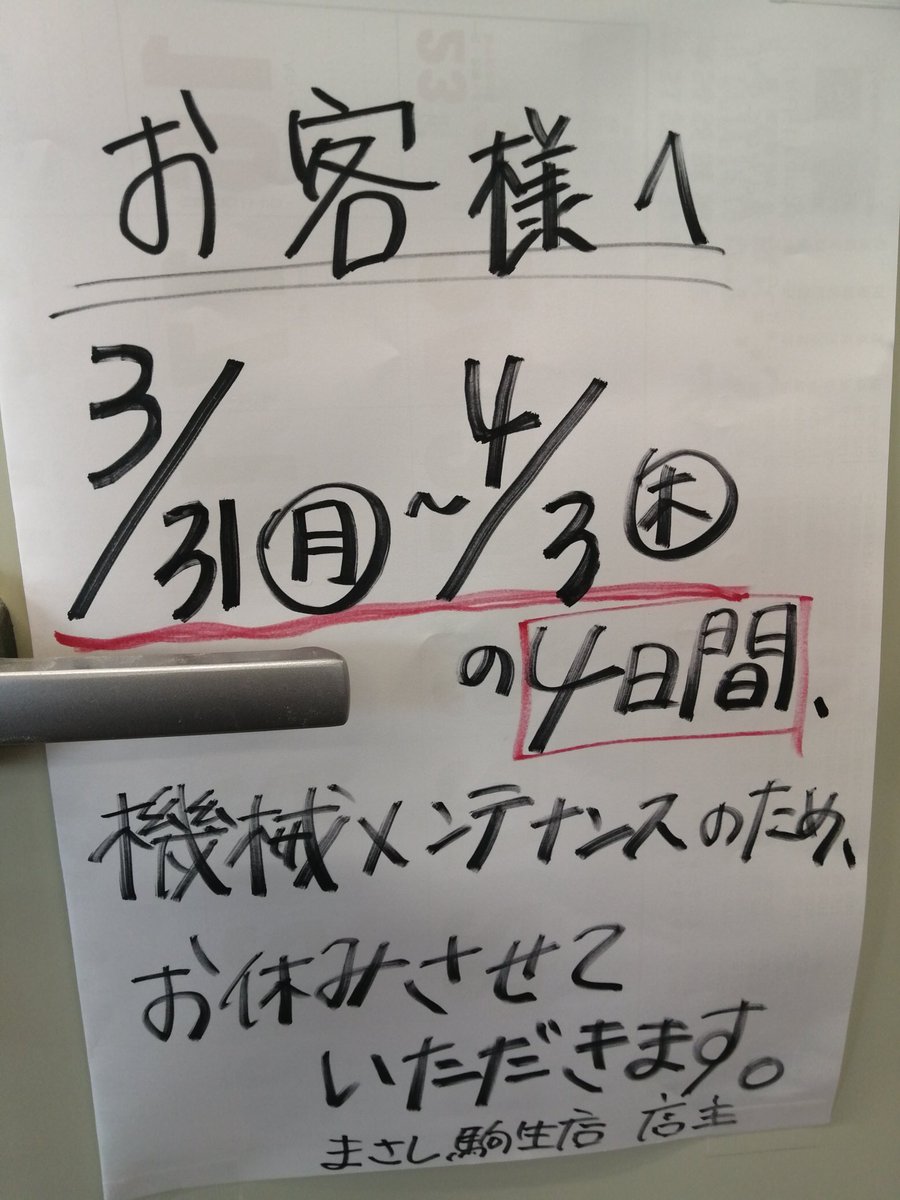 お客様へ
3/31㊊～4/3㊍
の4日間、
機械メンテナンスのため、
お休みさせて
いただきます。
まさし駒生店 店主